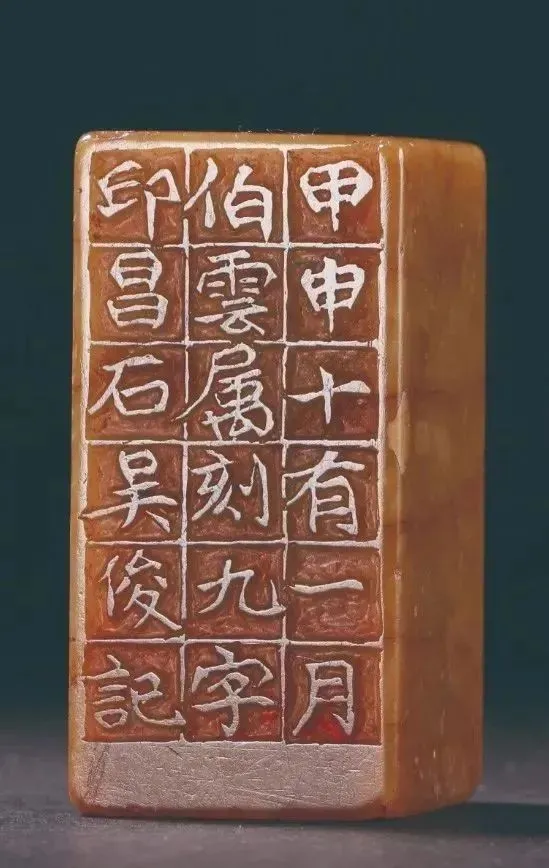 甲申十有一月
伯雲属刻九字
印昌石吴俊記